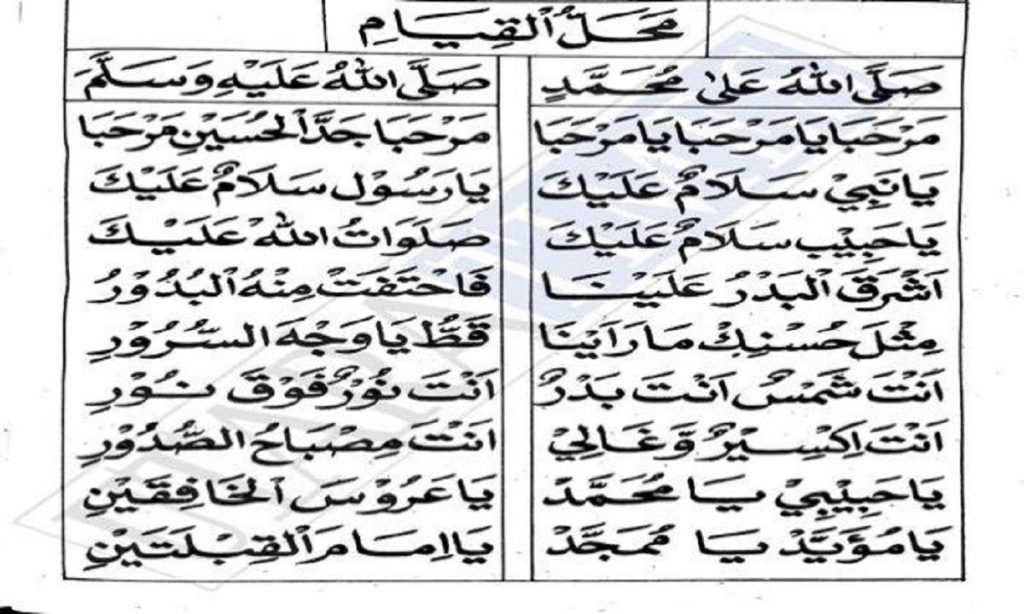 مَحَلُّ الْقِيَامِ
صَلَّى اللهُ عَلَىٰ مُحَمَّدٍ صَلَّى اللهُ عَلَيْهِ وَسَلَّمَ
مَرْحَبَا يَا مَرْحَبَا يَا مَرْحَبَا مَرْحَبَا جَدَّ الْحُسَيْنِ مَرْحَبَا
يَا نَبِيْ سَلَامٌ عَلَيْكَ يَا رَسُوْل سَلَامٌ عَلَيْكَ
يَا حَبِيْب سَلَامٌ عَلَيْكَ صَلَوَاتُ اللهْ عَلَيْكَ
اَشْرَقَ الْبَدْرُ عَلَيْنَا فَاخْتَفَتْ مِنْهُ الْبُدُوْرُ
مِثْلَ حُسْنِكْ مَا رَاَيْنَا قَطُّ يَا وَجْهَ السُّرُوْرِ
اَنْتَ شَمْسٌ اَنْتَ بَدْرٌ اَنْتَ نُوْرٌ فَوْقَ نُوْرِ
اَنْتَ اِكْسِيْرٌ وَّغَالِيْ اَنْتَ مِصْبَاحُ الصُّدُوْرِ
يَا حَبِيْبِيْ يَا مُحَمَّدْ يَا عَرُوْسَ الْخَافِقَيْنِ
يَا مُؤَيَّدْ يَا مُمَجَّدْ يَا اِمَامَ الْقِبْلَتَيْنِ